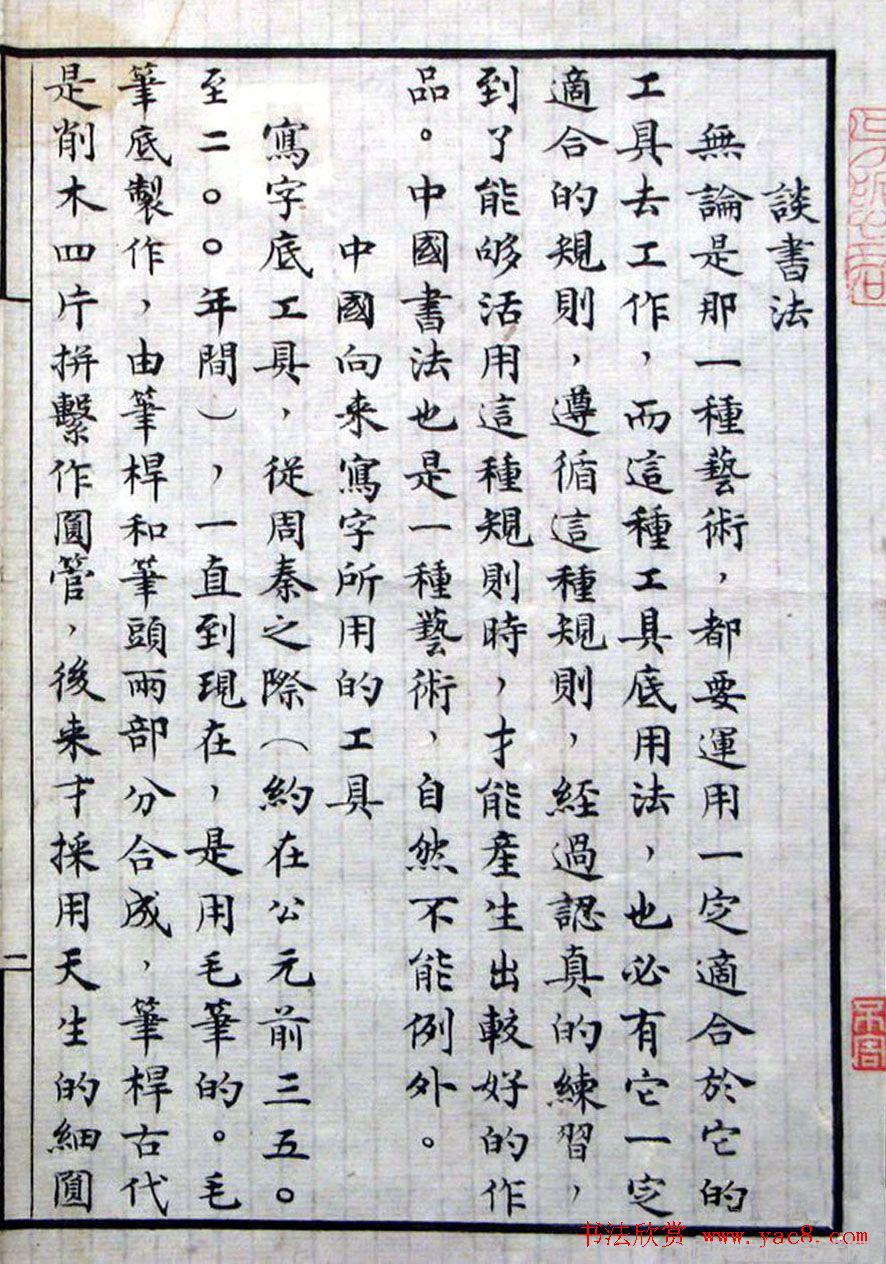 談書法
無論是那一種藝術，都要運用一定適合於它的
工具去工作，而這種工具底用法，也必有它一定
適合的規則，遵循這種規則，經過認真的練習，
到了能够活用這種規則時，才能產生出較好的作
品。中國書法也是一種藝術，自然不能例外。
中國向来寫字所用的工具
寫字底工具，從周秦之際（約在公元前三五〇
至二〇〇年間），一直到現在，是用毛筆的。毛
筆底製作，由筆桿和筆頭兩部分合成，筆桿古代
是削木四片拼繫作圓管，後来才採用天生的細圓
二
书法欣赏 www.yac8.com